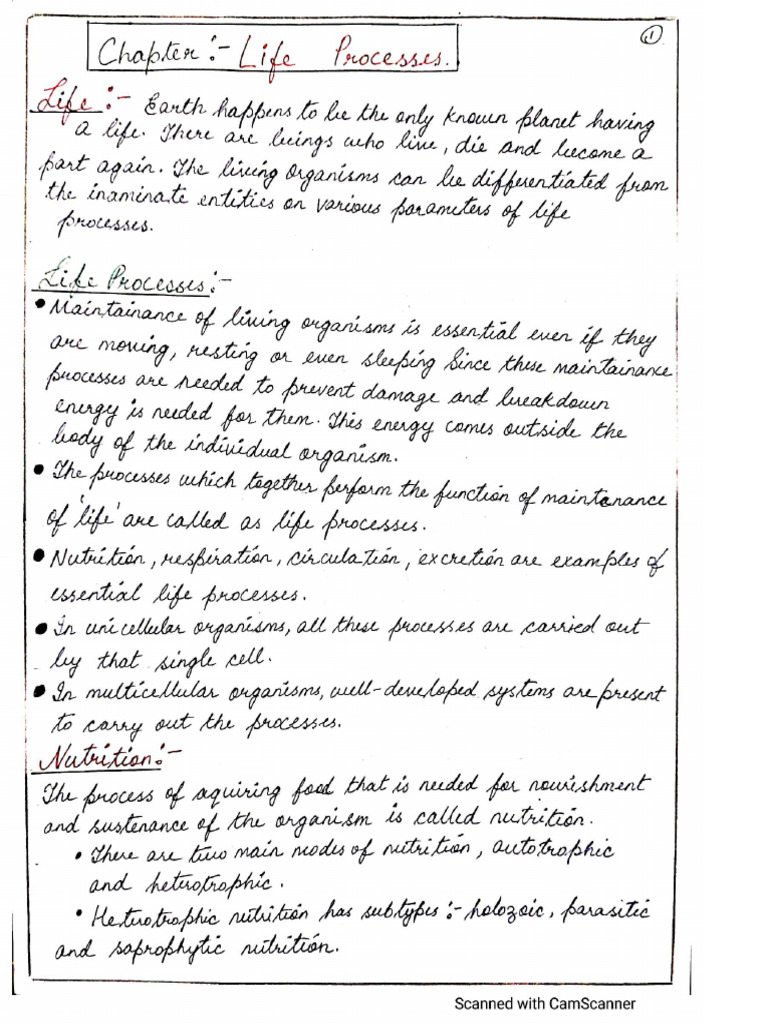 1
Chapter :- Life Processes.
Life :- Earth happens to be the only known planet having
a life. There are beings who live, die and become a
part again. The living organisms can be differentiated from
the inaminate entities on various parameters of life
processes.
Life Processes :-
• Maintainance of living organisms is essential even if they
are moving, resting or even sleeping Since these maintainance
processes are needed to prevent damage and breakdown
energy is needed for them. This energy comes outside the
body of the individual organism.
• The processes which together perform the function of maintenance
of 'life' are called as life processes.
• Nutrition, respiration, circulation, excretion are examples of
essential life processes.
• In unicellular organisms, all these processes are carried out
by that single cell.
• In multicellular organisms, well-developed systems are present
to carry out the processes.
Nutrition :-
The process of aquiring food that is needed for nourishment
and sustenance of the organism is called nutrition.
• There are two main modes of nutrition, autotrophic
and heterotrophic.
• Heterotrophic nutrition has subtypes :- holozoic, parasitic
and saprophytic nutrition.
Scanned with CamScanner